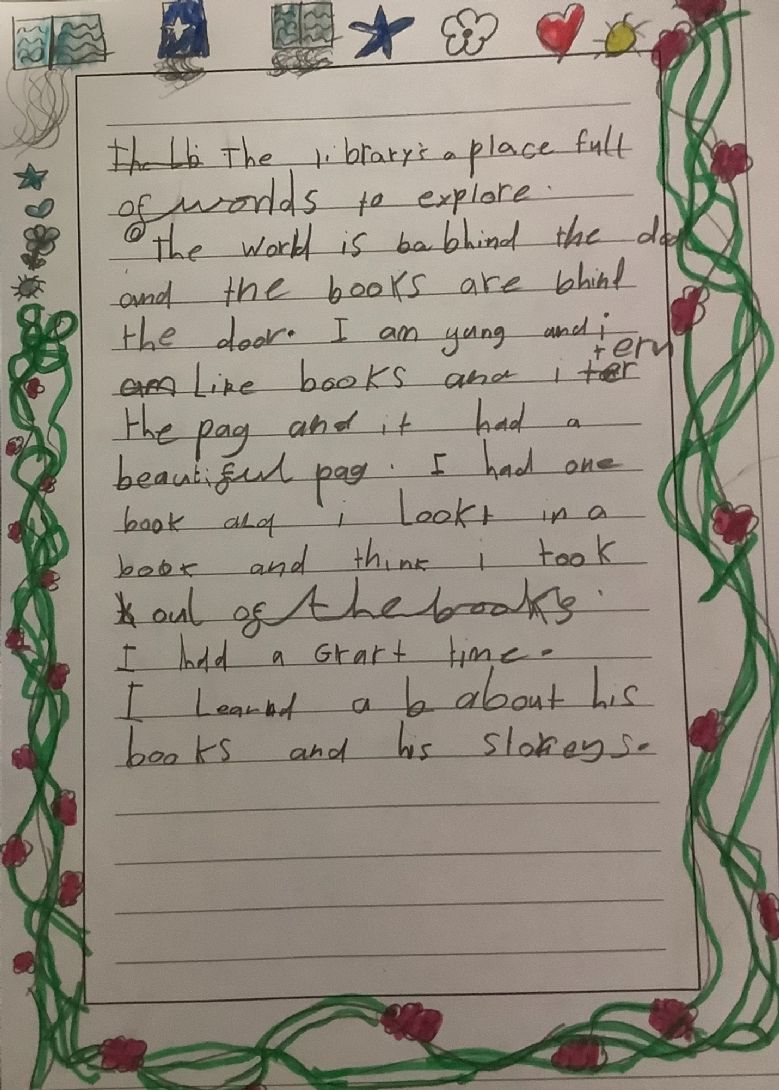 The Lib The library's a place full
of worlds to explore.
The world is ba bhind the doo
and the books are bhind
the door. I am yung and i
am Like books and i ter tern
the pag and it had a
beautiful pag. I had one
book and i Lookt in a
book and think i took
out of the books.
I had a Grart time.
I Learnd a b about his
books and his storeys.